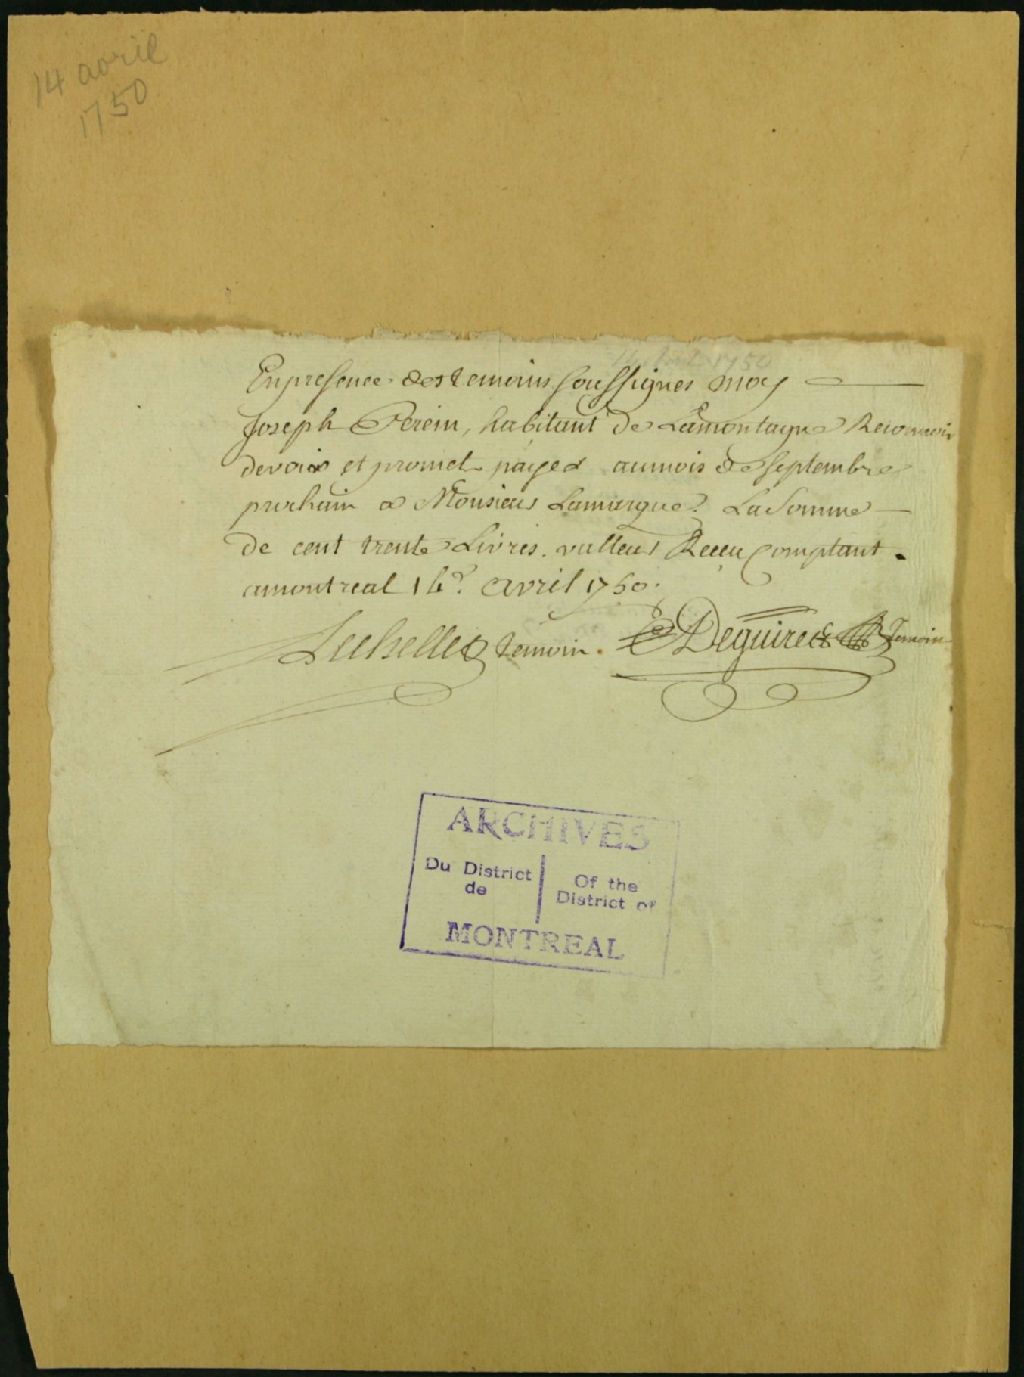 14 avril
1750
1750
En presence des temoins soussignes moy
Joseph Perein, habitant de Lamontagne Reconnois
devoir et promet payer au mois de septembre
prochain a Monsieur Lamarque La Somme
de cent trente Livres. valleur Receu Comptant.
a montreal 14e. avril 1750.
temoin. Deguire temoin
ARCHIVES
Du District
de
Of the
District of
MONTREAL